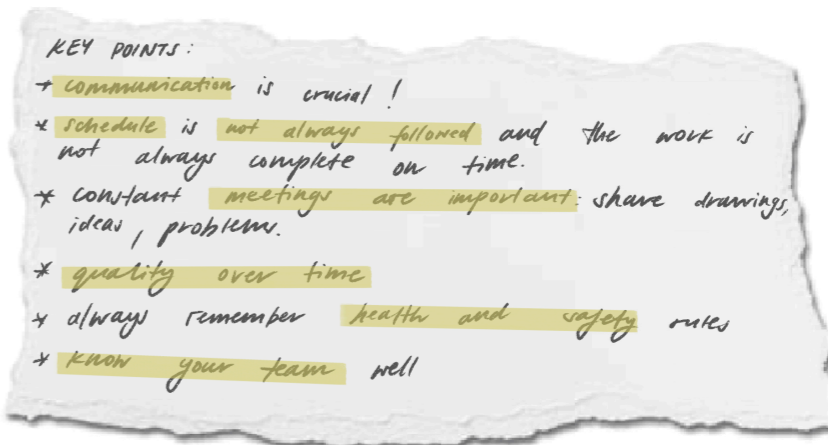 KEY POINTS:
* communication is crucial!
* schedule is not always followed and the work is
not always complete on time.
* constant meetings are important: share drawings,
ideas, problems.
* quality over time
* always remember health and safety rules
* know your team well